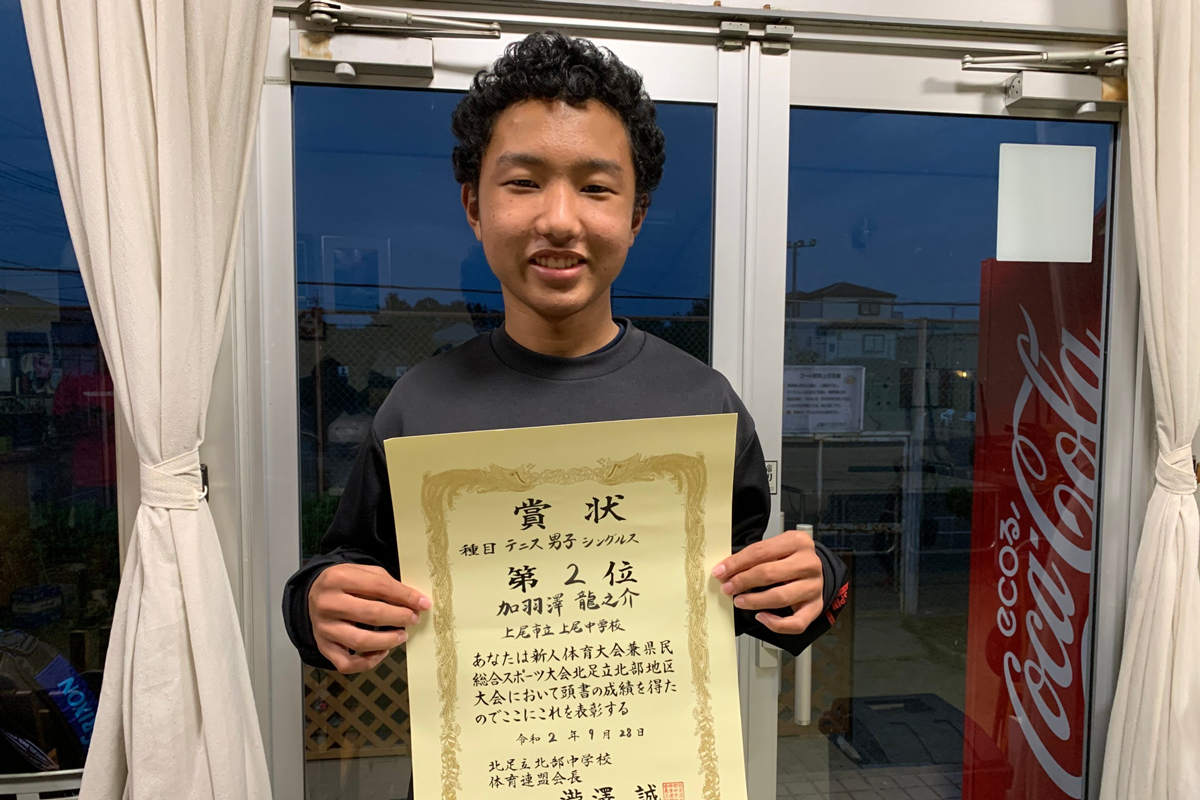 賞状
種目 テニス 男子 シングルス
第 2 位
加羽澤 龍之介
上尾市立 上尾中学校
あなたは新人体育大会兼県民
総合スポーツ大会北足立北部地区
大会において頭書の成績を得た
のでここにこれを表彰する
令和 2 年 9 月 28 日
北足立北部中学校
体育連盟会長
瀧澤 誠
ecoる/
Coca-Cola